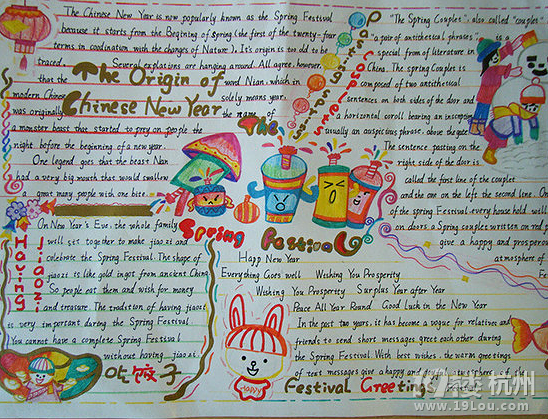 The Chinese New Year is now popularly known as the Spring Festival
because it starts from the Beginning of Spring (the first of the twenty-four
terms in coodination with the changes of Nature). It's origin is too old to be
traced. Several explations are hanging around. All agree, however,
that the word Nian, which in
modern Chinese solely means year,
was originally the name of
a monster beast that started to prey on people the
night before the beginning of a new year.
One legend goes that the beast Nian
had a very big mouth that would swallow
a great many people with one bite.
The Origin of
Chinese New Year
Pasting Spring
Couplets
"The Spring Couplets", also called "couplet"
"a pair of antithetical phrases", is a
special from of literature in
China. The spring Couplet is
composed of two antithetical
sentences on both sides of the door and
a horizontal scroll bearing an
usually an auspicious phrase, above the gate
The sentence pasting on the
right side of the door is
called the first line of the couplet
and the one on the left the second line. On
of the spring Festival, every house hold will
on doors a Spring couplet written on red
give a happy and prosperous
atmosphere of
The
Spring Festival
On New Year's Eve, the whole family
will set together to make jiaozi and
celebrate the Spring Festival. The shape of
jiaozi is like gold ingot from ancient China
So people eat them and wish for money
and treasure. The tradition of having jiaozi
is very important during the Spring Festival
You cannot have a complete Spring Festival
without having jiaozi.
Having
Jiaozi
吃饺子
Happ New Year
Everything Goes well Wishing You Prosperity
Wishing You Prosperity Surplus Year after Year
Peace All Year Round Good Luck in the New Year
In the past two years, it has become a vogue for relatives and
friends to send short messages greet each other during
the Spring Festival. With best wishes, the warm greetings
of text message give a happy and atmosphere of the
HAPPY
Festival Greetings
杭州
www.19lou.com